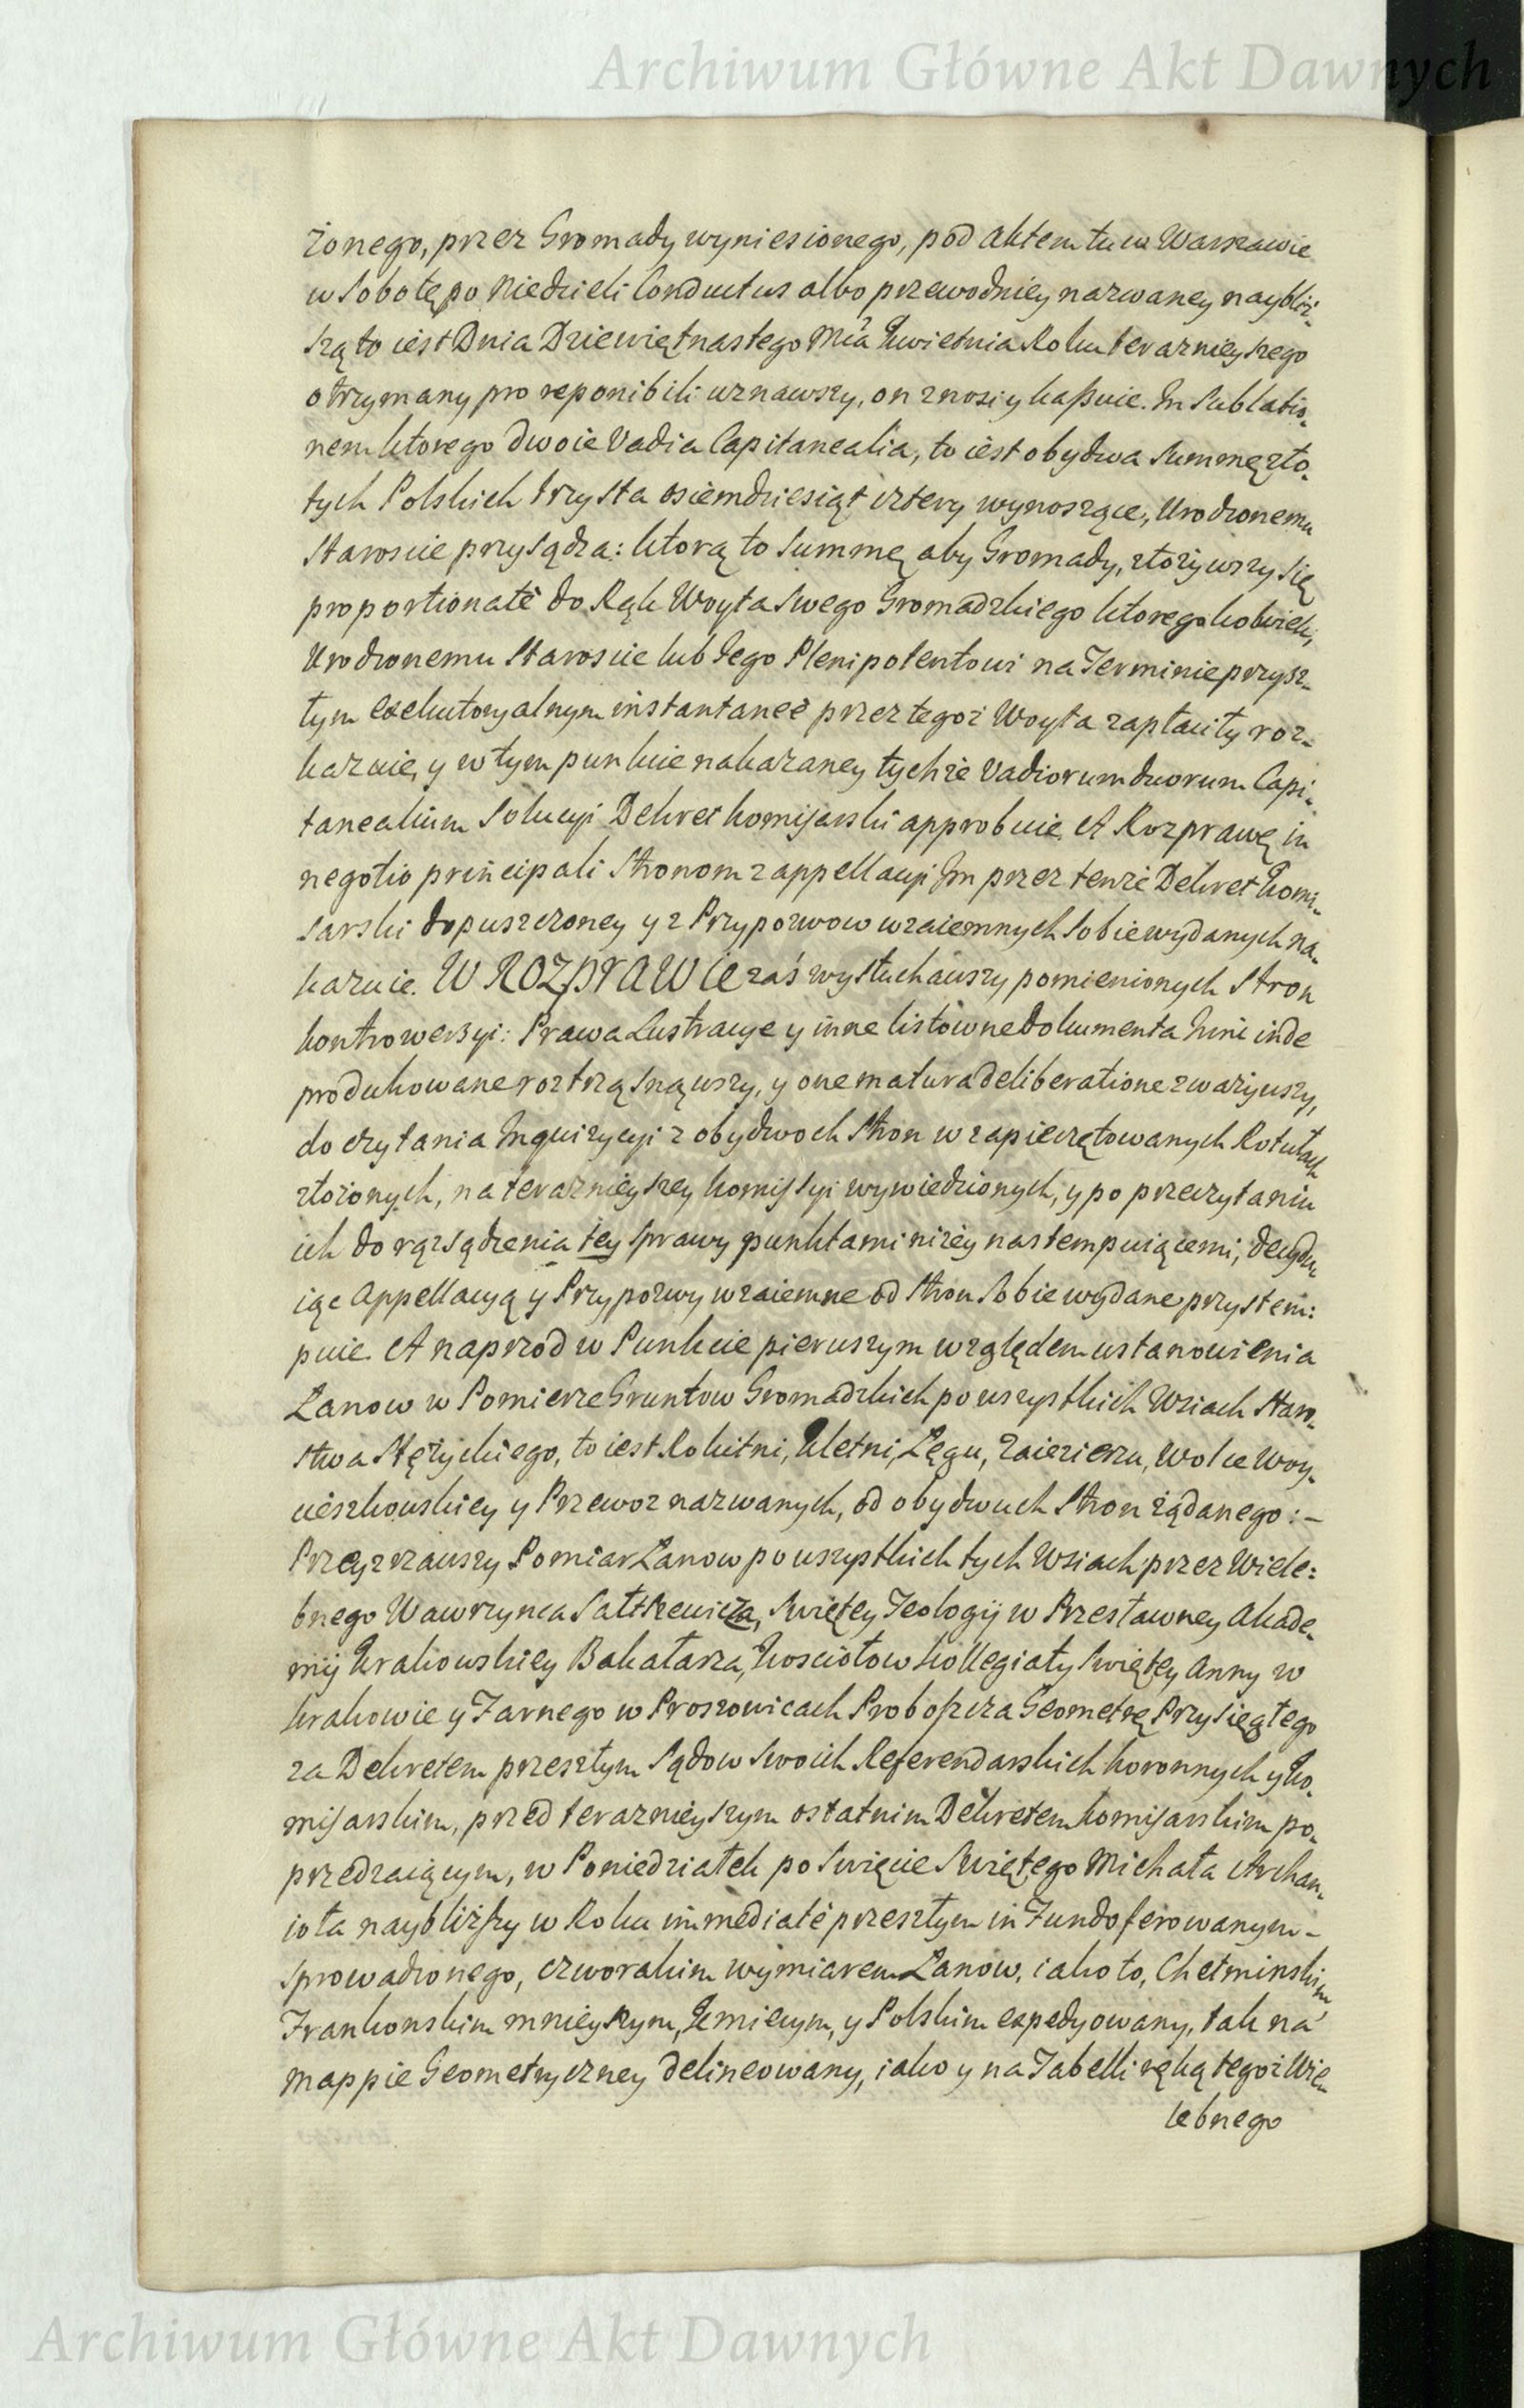 Archiwum Główne Akt Dawnych
żonego, przez Gromady wyniesionego, pod Aktem tu w Warszawie
w Sobotę po Niedzieli Conductus albo przewodniey nazwaney naybliż-
szą to iest Dnia Dziewiętnastego Mca Kwietnia Roku terazniejszego
otrzymany pro reponibili uznawszy, on znosi y kassuie. In Sublatio-
nem ktorego dwoie Vadia Capitanealia, to iest obydwa Summę zło-
tych Polskich trzysta osiemdziesiąt cztery wynoszące, Urodzonemu
Staroscie przysądza: ktorą to Summę aby Gromady, złożywszy się
proportionatè do Rąk Woyta swego Gromadzkiego ktoregokolwiek,
Urodzonemu Staroscie lub Jego Plenipotentowi na Terminie przysz-
łym exekutoryalnym instantaneè przez tegoż Woyta zapłaciły roz-
kazuie, y w tym punkcie nakazaney tychże Vadiorum duorum Capi-
tanealium Solucyi Dekret komisarski approbuie. A Rozprawę in
negotio principali Stronom z appellacyi Im przez tenże Dekret Komi-
sarski dopuszczoney y z Przypozwow wzaiemnych sobie wydanych na-
kazuie. W ROZPRAWIE zaś wysłuchawszy pomienionych Stron
kontrowersyi: Prawa Lustracye y inne listowne dokumenta hinc inde
produkowane roztrząsnąwszy, y one matura deliberatione zważywszy,
do czytania Inquizycyi z obydwoch Stron w zapieczętowanych Rotułach
złożonych, na terazniejszey komissyi wywiedzionych, y po przeczytaniu
ich do rozsądzenia tey sprawy punktami niżey nastempuiącemi, decydu-
iąc Appellacyą y Przypozwy wzaiemne od Stron sobie wydane przystem:
puie. A naprzod w Punkcie pierwszym względem ustanowienia
Łanow w Pomierze Gruntow Gromadzkich po wszystkich Wsiach Staro-
stwa Stężyckiego, to iest Rokitni, Kletni, Łęgu, Zaiezierzu, Wolce Woy-
cieszkowskiey y Przewoz nazwanych, od obydwuch Stron żądanego: –
Przeyzrzawszy Pomiar Łanow po wszystkich tych Wsiach przez Wiele:
bnego Wawrzynca Sałtszewicza, Swiętey Teologij w Przesławney Akade-
mij Krakowskiey Bakałarza, Kosciołow Kollegiaty Swiętey Anny w
Krakowie y Farnego w Proszowicach Proboszcza Geometrę Przysięgłego
za Dekretem przeszłym Sądow Swoich Referendarskich koronnych y Ko-
misarskim, przed terazniejszym ostatnim Dekretem komisarskim po-
przedzaiącym, w Poniedziałek po Swięcie Swiętego Michała Archan-
ioła nayblizszy w Roku immediatè przeszłym in Fundo ferowanym –
sprowadzonego, czworakim wymiarem Łanow, iako to, Chełminskim
Frankonskim mnieyszym, Kmiecym, y Polskim expedyowany, tak na
mappie Geometryczney delineowany, iako y na Tabelli ręką tegoż Wie-
lebnego
Archiwum Główne Akt Dawnych